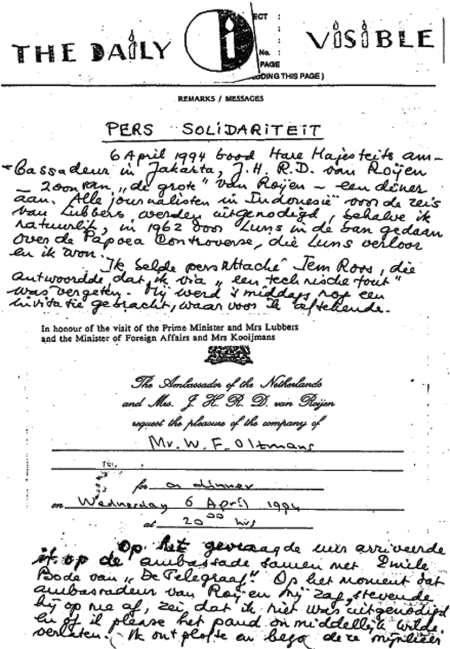 THE DAILY i VISIBLE
ECT :
:
No. :
PAGE
DING THIS PAGE)
REMARKS / MESSAGES
PERS SOLIDARITEIT
6 April 1994 bood Hare Majesteits am-
bassadeur in Jakarta, J.H.R.D. van Roijen
- zoon van „de grote" van Roijen - een diner
aan. Alle journalisten in Indonesië voor de reis
van Lubbers werden uitgenodigd, behalve ik
natuurlijk, in 1962 door Luns in de ban gedaan
over de Papoea Controverse, die Luns verloor
en ik won.
Ik belde pers attaché Jem Roos, die
antwoordde dat ik via „een technische fout"
was vergeten. Mij werd 's middags nog een
invitatie gebracht, waar voor ik aftekende.
In honour of the visit of the Prime Minister and Mrs Lubbers
and the Minister of Foreign Affairs and Mrs Kooijmans
The Ambassador of the Netherlands
and Mrs. J. H. R. D. van Roijen
request the pleasure of the company of
Mr. W. F. Oltmans
for a dinner
on Wednesday 6 April 1994
at 20⁰⁰ hrs
Op het gevraagde uur arriveerde
ik op de ambassade samen met Emile
Bode van „De Telegraaf". Op het moment dat
ambassadeur van Roijen mij zag, stevende
hij op me af, zei, dat ik niet was uitgenodigd
en of ik please het pand onmiddellijk wilde
verlaten. Ik ontplofte en deze